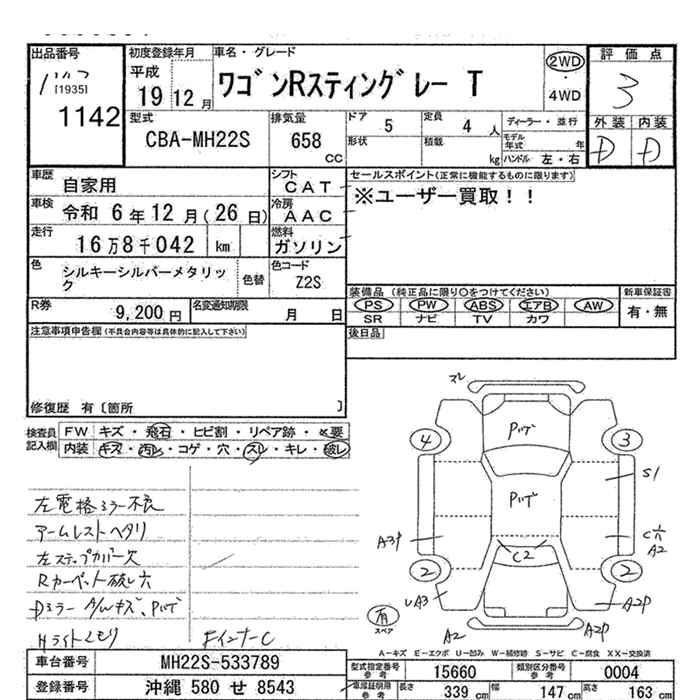 出品番号
[1935]
1142
初度登録年月
平成
19 12月
車名・グレード
ワゴンRスティングレー T
2WD
・
4WD
評価点
3
外装 内装
D D
型式
CBA-MH22S
排気量
658
CC
ドア
5
定員
4 人
形状
積載
kg
ディーラー・並行
モデル年式 年
ハンドル 左・右
車歴
自家用
シフト
CAT
車検
令和 6年12月(26日)
冷房
AAC
走行
16万8千042 km
燃料
ガソリン
色
シルキーシルバーメタリック
色替
色コード
Z2S
R券
9,200円
名変通知期限
月 日
セールスポイント(正常に機能するものに限ります)
※ユーザー買取!!
装備品 (純正品に限り○をつけてください)
PS PW ABS エアB AW
SR ナビ TV カワ
新車保証書
有・無
後日品
注意事項申告欄(不具合内容等は具体的に記入して下さい)
修復歴 有〔箇所 〕
検査員記入欄
FW キズ・飛石・ヒビ割・リペア跡・×要
内装 キズ・汚レ・コゲ・穴・スレ・キレ・破レ
左電格ミラー不良
アームレストヘタリ
左ステップカバー欠
Rカーペット破レ穴
Hライトくもり
FインナーC
スレ
4
3
S1
A3P
C穴
A2
C2
2
2
A3
A2P
A2
A2P
有
スペア
A-キズ E-エクボ U-凹み W-補修跡 S-サビ C-腐食 XX-交換済
車台番号
MH22S-533789
登録番号
沖縄 580 せ 8543
型式指定番号
参考
15660
類別区分番号
参考
0004
車庫証明用
参考
長さ
339 cm
幅
147 cm
高さ
163 cm